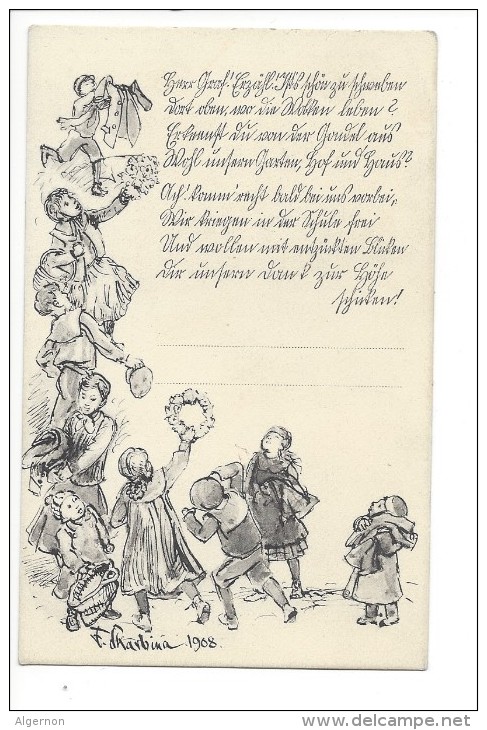 Herr Graf! Erzähl! Ist's schön zu schweben
Dort oben, wo die Wolken leben?
Erkennst Du von der Gondel aus
Wohl unsern Garten, Hof und Haus?
Ach! komm' recht bald bei uns vorbei,
Wir kriegen in der Schule frei
Und wollen mit entzückten Blicken
Dir unsern Dank zur Höhe
schicken!
F. Skarbina 1908.
Algernon
delcampe.net